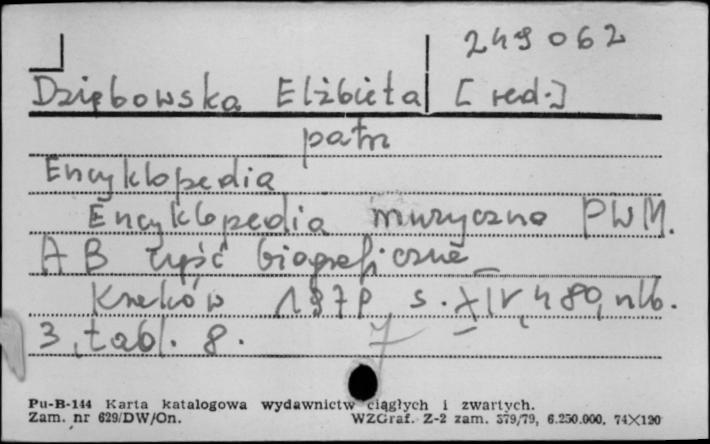 249 062
Dziębowska Elżbieta [red.]
patrz
Encyklopedia
Encyklopedia muzyczna PWM.
AB część biograficzna
Kraków 1979, s. XIV, 480, nlb.
3, tabl. 8.
Pu-B-144 Karta katalogowa wydawnictw ciągłych i zwartych.
Zam. nr 629/DW/On. WZGraf. Z-2 zam. 379/79, 6.250.000, 74X120